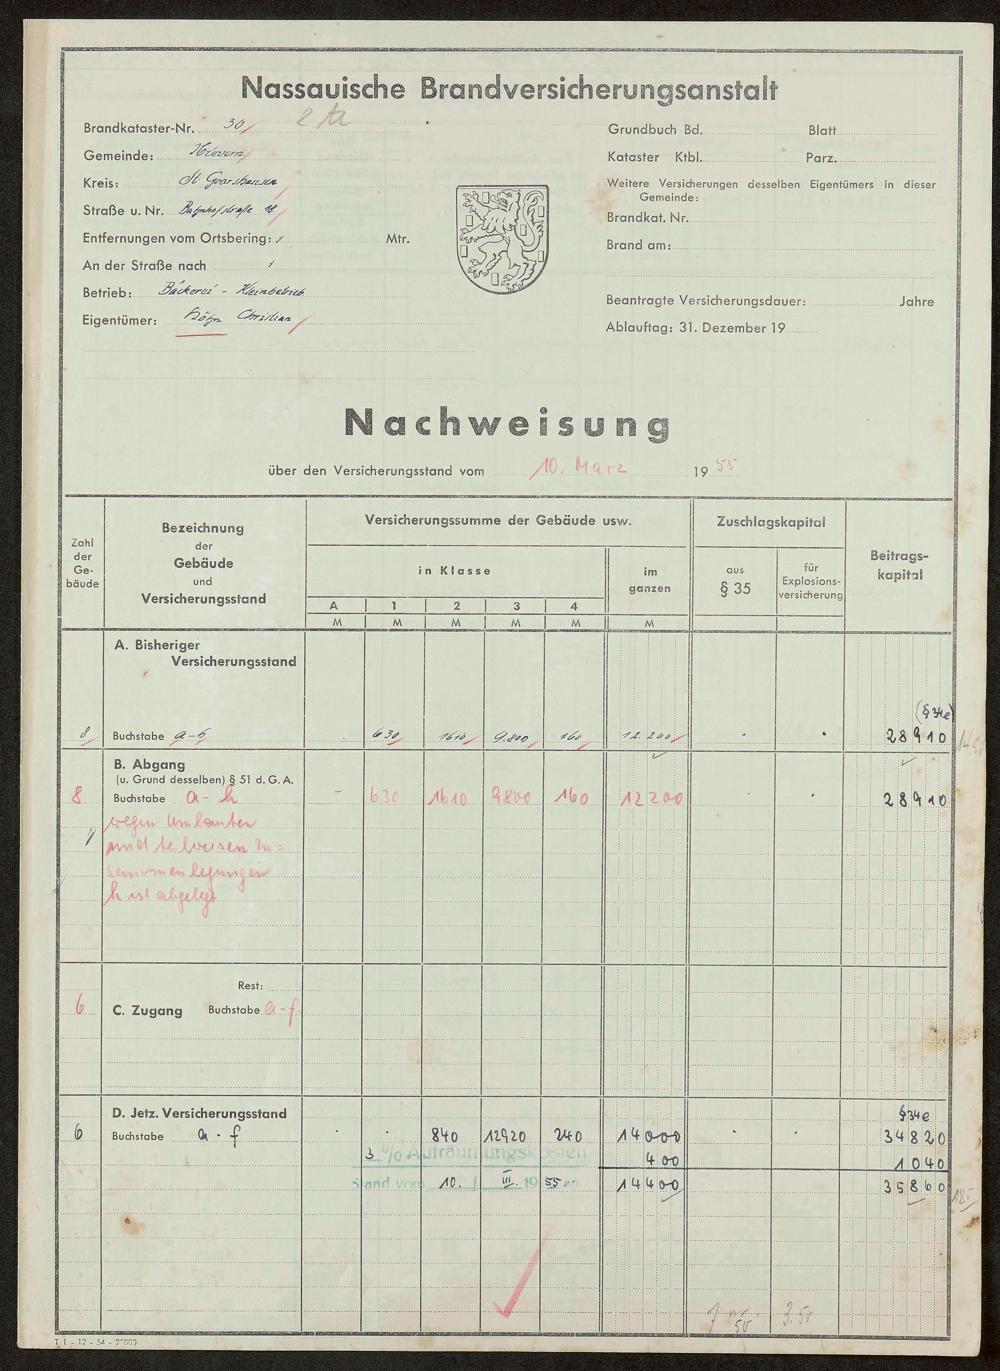 Nassauische Brandversicherungsanstalt
Brandkataster-Nr. 30
Gemeinde: Nievern
Kreis: St. Goarshausen
Straße u. Nr. Bahnhofstraße 18
Entfernungen vom Ortsbering: / Mtr.
An der Straße nach /
Betrieb: Bäckerei - Kleinbetrieb
Eigentümer: Höhn Christian
Grundbuch Bd. Blatt
Kataster Ktbl. Parz.
Weitere Versicherungen desselben Eigentümers in dieser
Gemeinde:
Brandkat. Nr.
Brand am:
Beantragte Versicherungsdauer: Jahre
Ablauftag: 31. Dezember 19
Nachweisung
über den Versicherungsstand vom 10. März 1955
Zahl der Ge-bäude
Bezeichnung der Gebäude und Versicherungsstand
Versicherungssumme der Gebäude usw.
in Klasse
im ganzen
A 1 2 3 4
M M M M M M
Zuschlagskapital
aus § 35
für Explosions-versicherung
Beitrags-kapital
A. Bisheriger
Versicherungsstand
(§ 34e)
8 Buchstabe a-h . 630 1610 9.800 160 12.200 . . 28910
B. Abgang
(u. Grund desselben) § 51 d. G. A.
8 Buchstabe a - h - 630 1610 9800 160 12200 . . 28910
wegen Umbauten
und teilweisen Zu=
sammenlegungen
h ist abgelegt
Rest:
6 C. Zugang Buchstabe a - f
D. Jetz. Versicherungsstand § 34e
6 Buchstabe a - f . . 840 12920 240 14000 . . 34820
3 % Aufräumungskosten 400 1040
Stand vom 10. III. 1955 14400 35860
3.50
T 1 - 12 - 54 - 20000